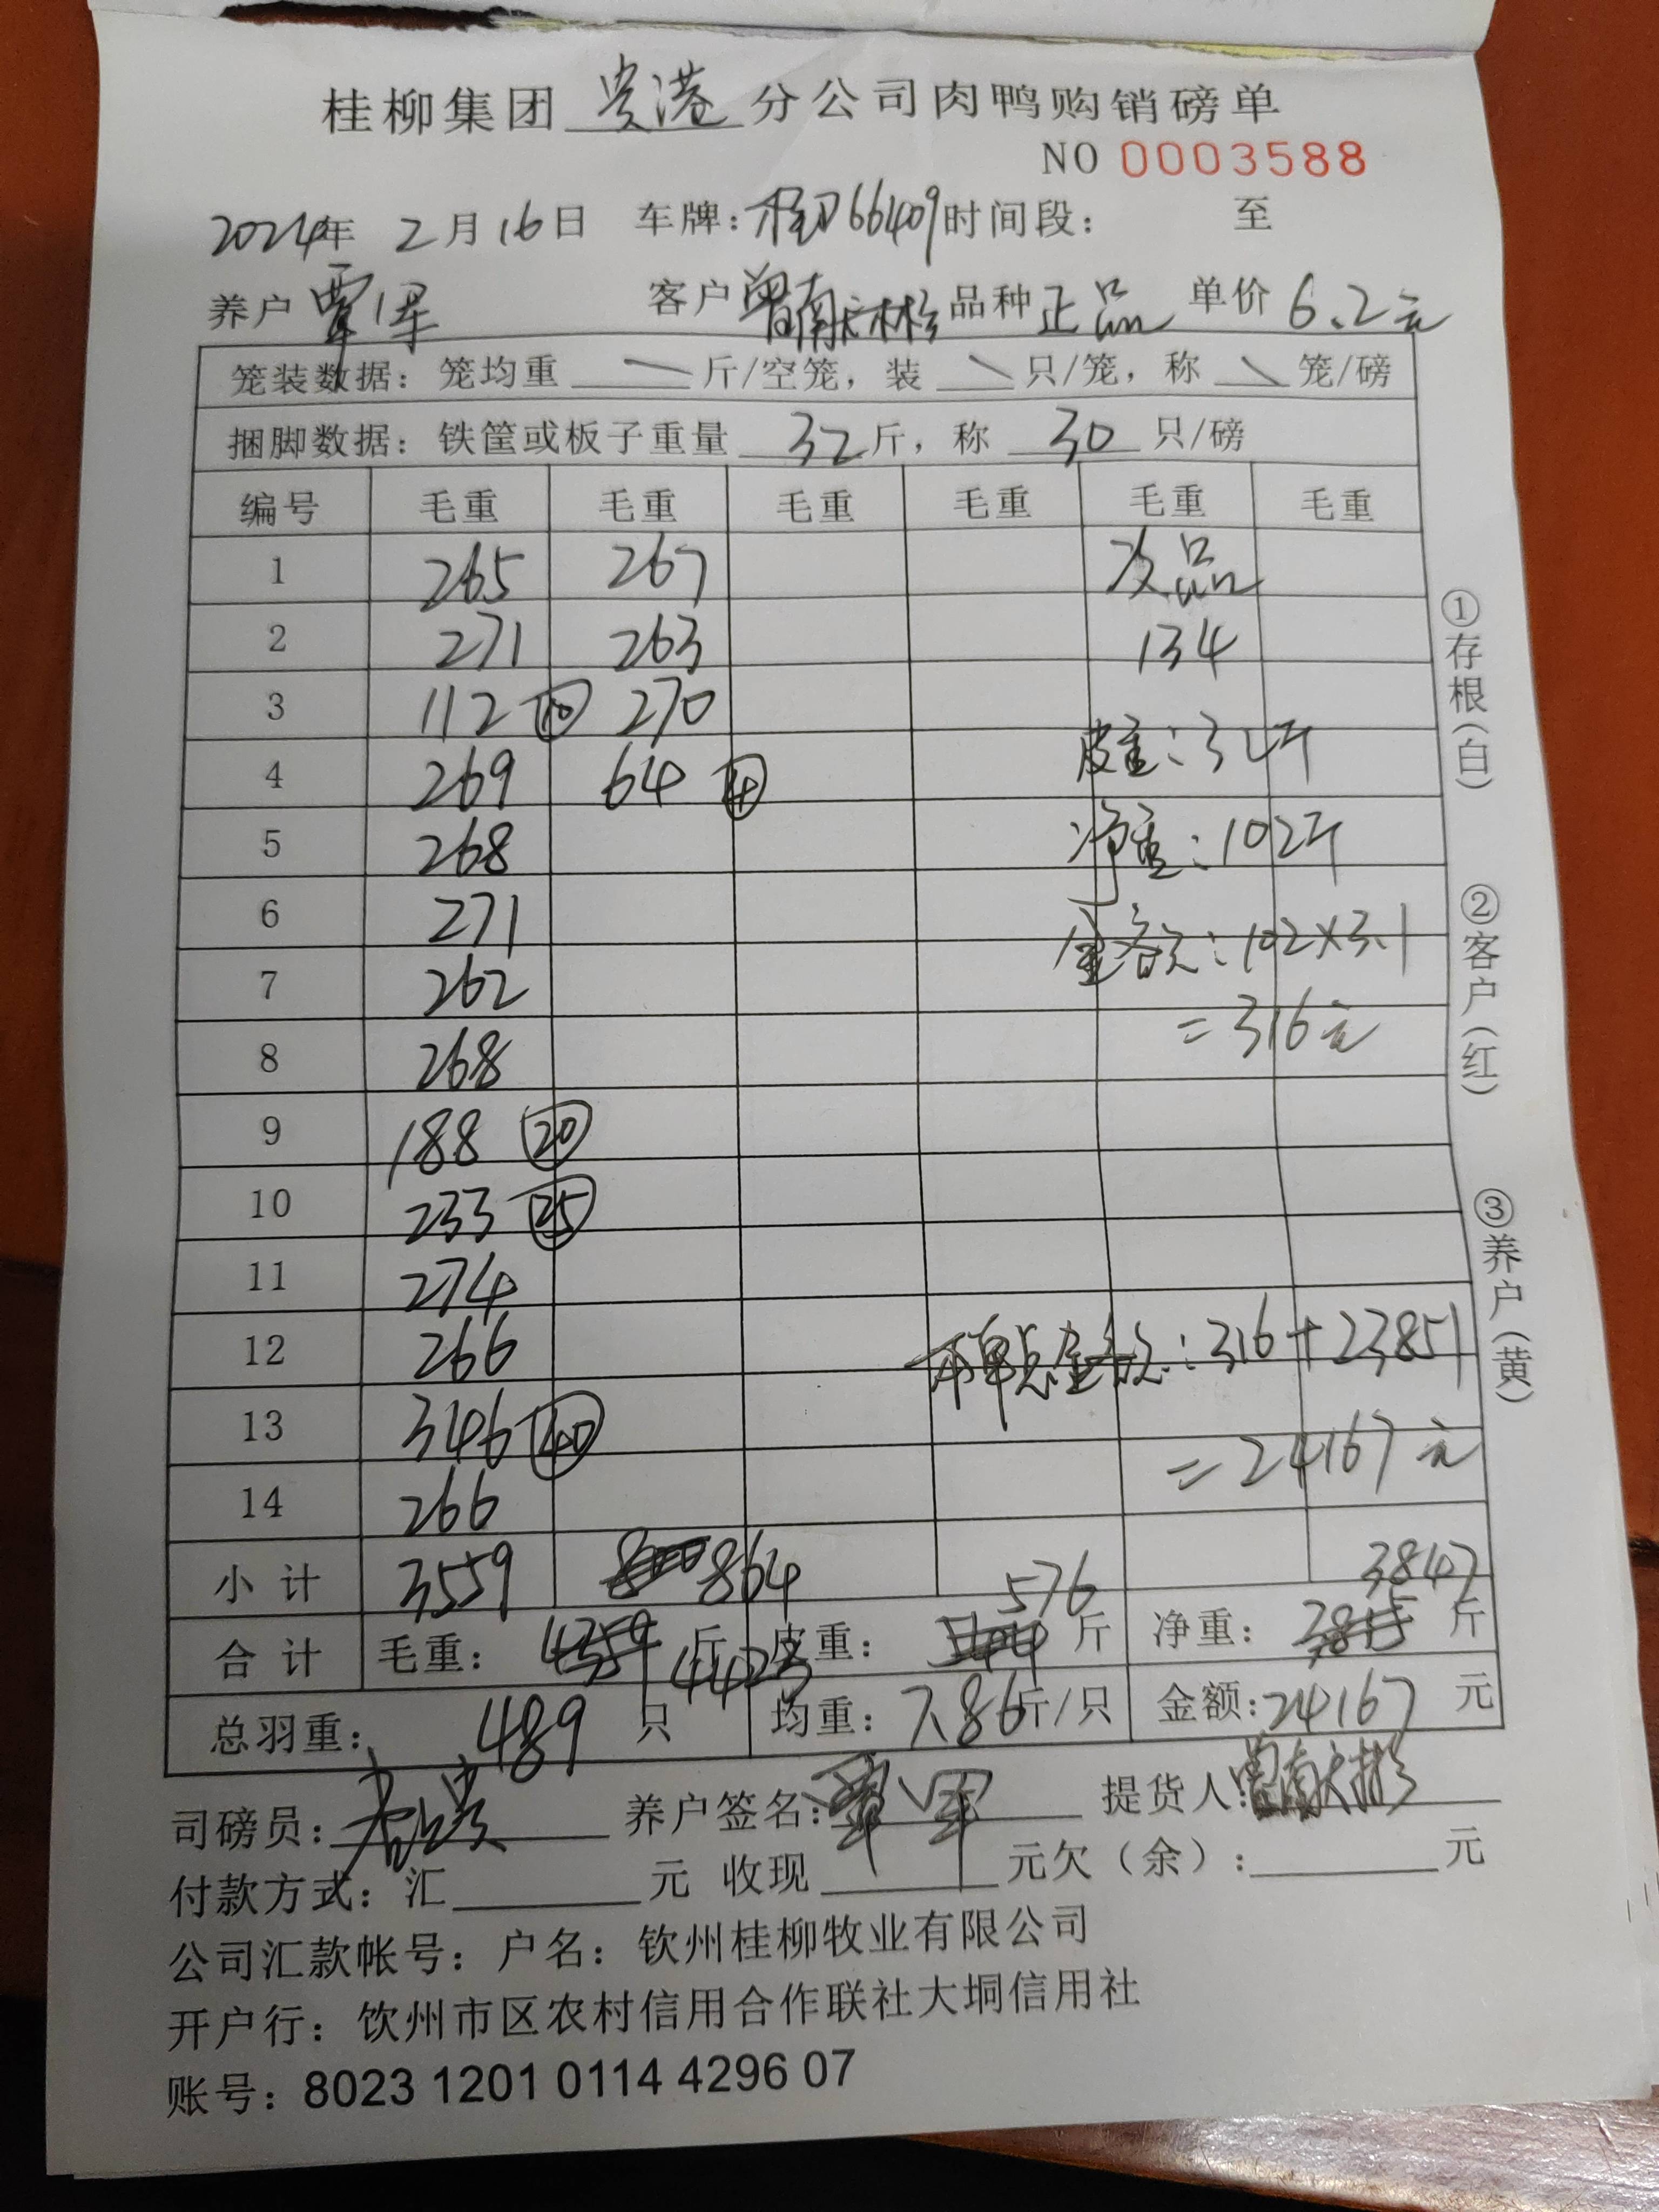 桂柳集团 贵港 分公司肉鸭购销磅单
NO 0003588
2024年 2月16日 车牌:桂D66409 时间段: 至
养户 覃军 客户 品种 正品 单价 6.2元
笼装数据: 笼均重 \ 斤/空笼, 装 \ 只/笼, 称 \ 笼/磅
捆脚数据: 铁筐或板子重量 32 斤, 称 30 只/磅
编号 毛重 毛重 毛重 毛重 毛重 毛重
1 265 267 次品
2 271 263 134
3 112 ⑩ 270 皮重:32斤
4 269 64 ④
5 268 净重:102斤
6 271 金额:102×3.1
7 262 =316元
8 268
9 188 ⑳
10 233 ㉕
11 274
12 266 本单总金额:316+23851
13 346 ㊵ =24167元
14 266
小计 3559 864 576 3847
合计 毛重: 4359 斤 4423 皮重: 544 斤 净重: 3815 斤
总羽重: 489 只 均重: 7.86斤/只 金额:24167 元
司磅员: 养户签名:覃军 提货人:
付款方式: 汇 元 收现 元欠(余): 元
公司汇款帐号: 户名: 钦州桂柳牧业有限公司
开户行: 钦州市区农村信用合作联社大垌信用社
账号: 8023 1201 0114 4296 07
①存根(白)
②客户(红)
③养户(黄)